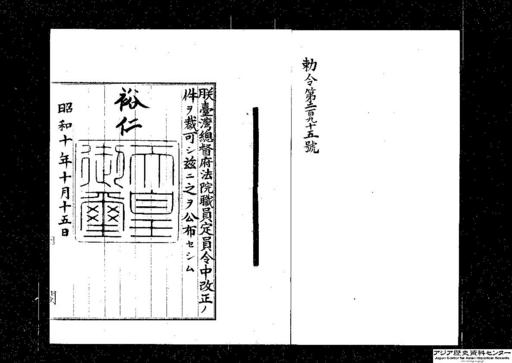 勅令第三百九十五號
朕臺灣總督府法院職員定員令中改正ノ
件ヲ裁可シ玆ニ之ヲ公布セシム
裕仁
天皇
御璽
昭和十年十月十五日
アジア歴史資料センター
Japan Center for Asian Historical Records